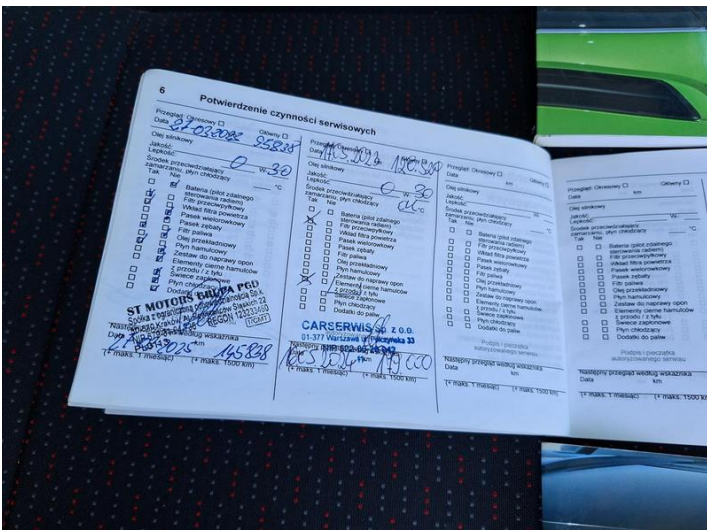 6
Potwierdzenie czynności serwisowych
Przegląd: Okresowy Główny
Data 27.02.2022 95838
Olej silnikowy
Jakość:
Lepkość: 0 W 30
Środek przeciwdziałający
zamarzaniu, płyn chłodzący °C
Tak Nie
Bateria (pilot zdalnego
sterowania radiem)
Filtr przeciwpyłkowy
Wkład filtra powietrza
Pasek wielorowkowy
Pasek zębaty
Filtr paliwa
Olej przekładniowy
Płyn hamulcowy
Zestaw do naprawy opon
Elementy cierne hamulców
z przodu / z tyłu
Świece zapłonowe
Płyn chłodzący
Dodatki do
ST MOTORS GRUPA PGD
Spółka z ograniczoną odpowiedzialnością Sp.k.
Kraków
Śląskich 22
REGON
według wskaźnika
2025 145838
(+ maks. 1 miesiąc) (+ maks. 1500 km)
Przegląd: Okresowy
Data
Olej silnikowy
Jakość:
Lepkość: 0 W 30
Środek przeciwdziałający
zamarzaniu, płyn chłodzący
Tak Nie
Bateria (pilot zdalnego
sterowania radiem)
Filtr przeciwpyłkowy
Wkład filtra powietrza
Pasek wielorowkowy
Pasek zębaty
Filtr paliwa
Olej przekładniowy
Płyn hamulcowy
Zestaw do naprawy opon
Elementy cierne hamulców
z przodu / z tyłu
Świece zapłonowe
Płyn chłodzący
Dodatki do paliw
CARSERWIS Sp. z o.o.
01-377 Warszawa ul. Połczyńska 33
NIP
(+ maks. 1 miesiąc) (+ maks. 1500 km)
Przegląd: Okresowy Główny
Data km
Olej silnikowy
Jakość:
Lepkość: W
Środek przeciwdziałający
zamarzaniu, płyn chłodzący °C
Tak Nie
Bateria (pilot zdalnego
sterowania radiem)
Filtr przeciwpyłkowy
Wkład filtra powietrza
Pasek wielorowkowy
Pasek zębaty
Filtr paliwa
Olej przekładniowy
Płyn hamulcowy
Zestaw do naprawy opon
Elementy cierne hamulców
z przodu / z tyłu
Świece zapłonowe
Płyn chłodzący
Dodatki do paliw
Podpis i pieczątka
autoryzowanego serwisu
Następny przegląd według wskaźnika
Data km
(+ maks. 1 miesiąc) (+ maks. 1500 km)
Przegląd: Okresowy Główny
Data km
Olej silnikowy
Jakość:
Lepkość: W
Środek przeciwdziałający
zamarzaniu, płyn chłodzący °C
Tak Nie
Bateria (pilot zdalnego
sterowania radiem)
Filtr przeciwpyłkowy
Wkład filtra powietrza
Pasek wielorowkowy
Pasek zębaty
Filtr paliwa
Olej przekładniowy
Płyn hamulcowy
Zestaw do naprawy opon
Elementy cierne hamulców
z przodu / z tyłu
Świece zapłonowe
Płyn chłodzący
Dodatki do paliw
Podpis i pieczątka
autoryzowanego serwisu
Następny przegląd według wskaźnika
Data km
(+ maks. 1 miesiąc) (+ maks. 1500 km)